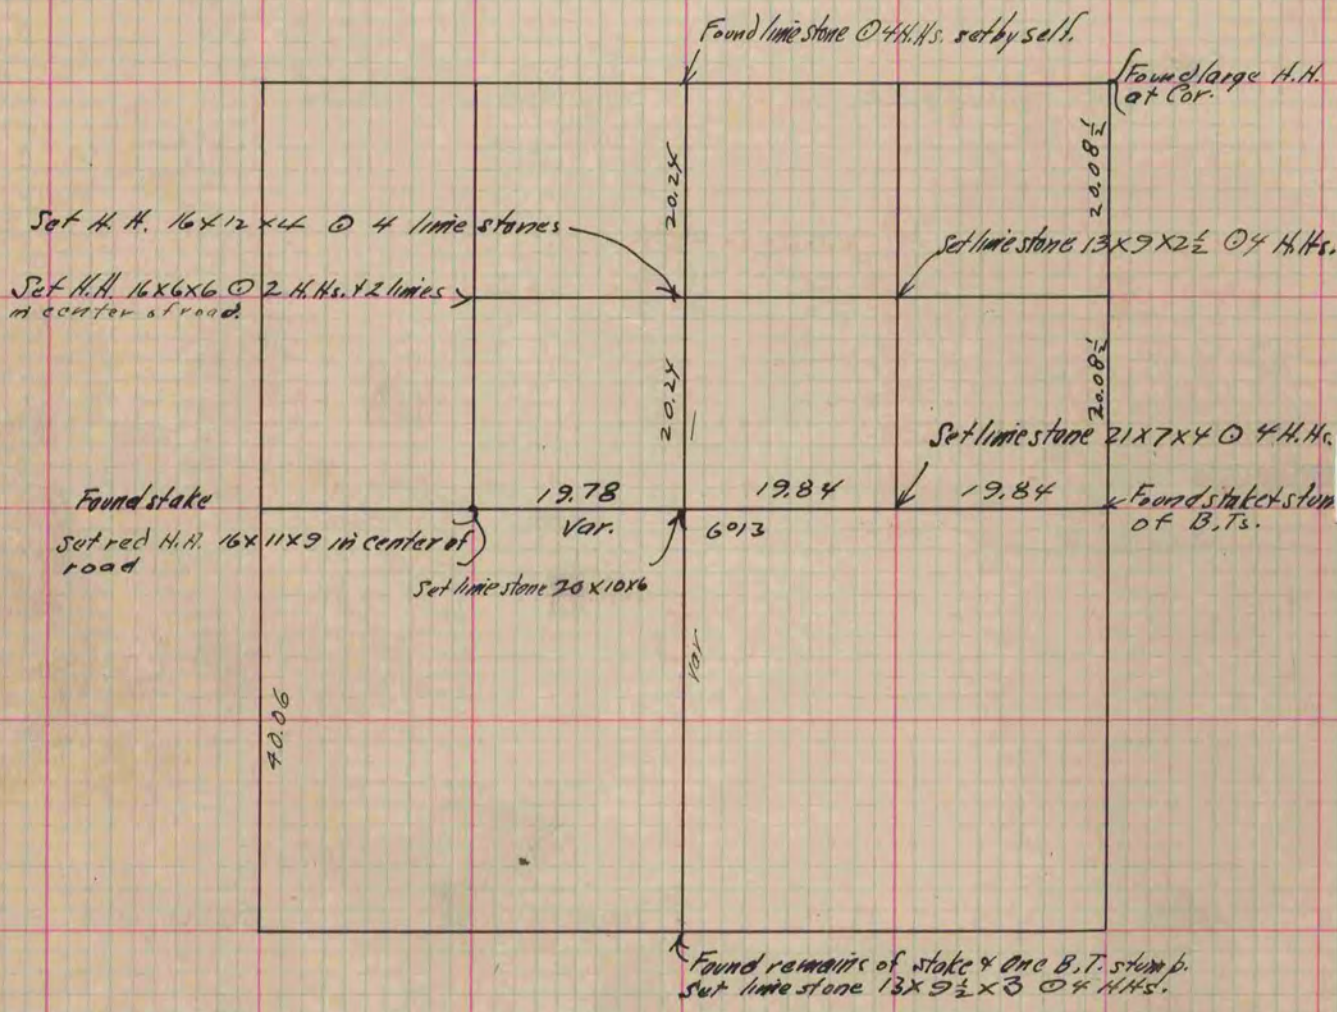 Found lime stone ⊙ 4 H.Hs. set by self.
Found large H.H.
at Cor.
20.24
20.08½
Set H.H. 16x12x4 ⊙ 4 lime stones
Set lime stone 13x9x2½ ⊙ 4 H.Hs.
Set H.H. 16x6x6 ⊙ 2 H.Hs. & 2 limes
in center of road.
20.24
20.08½
Set lime stone 21x7x4 ⊙ 4 H.Hs.
Found stake
19.78
19.84
19.84
Found stake & stum
of B.Ts.
Set red H.H. 16x11x9 in center of
road
Var.
6°13
Set lime stone 20x10x6
Var
40.06
Found remains of stake & one B.T. stump.
Set lime stone 13x9½x3 ⊙ 4 HHs.